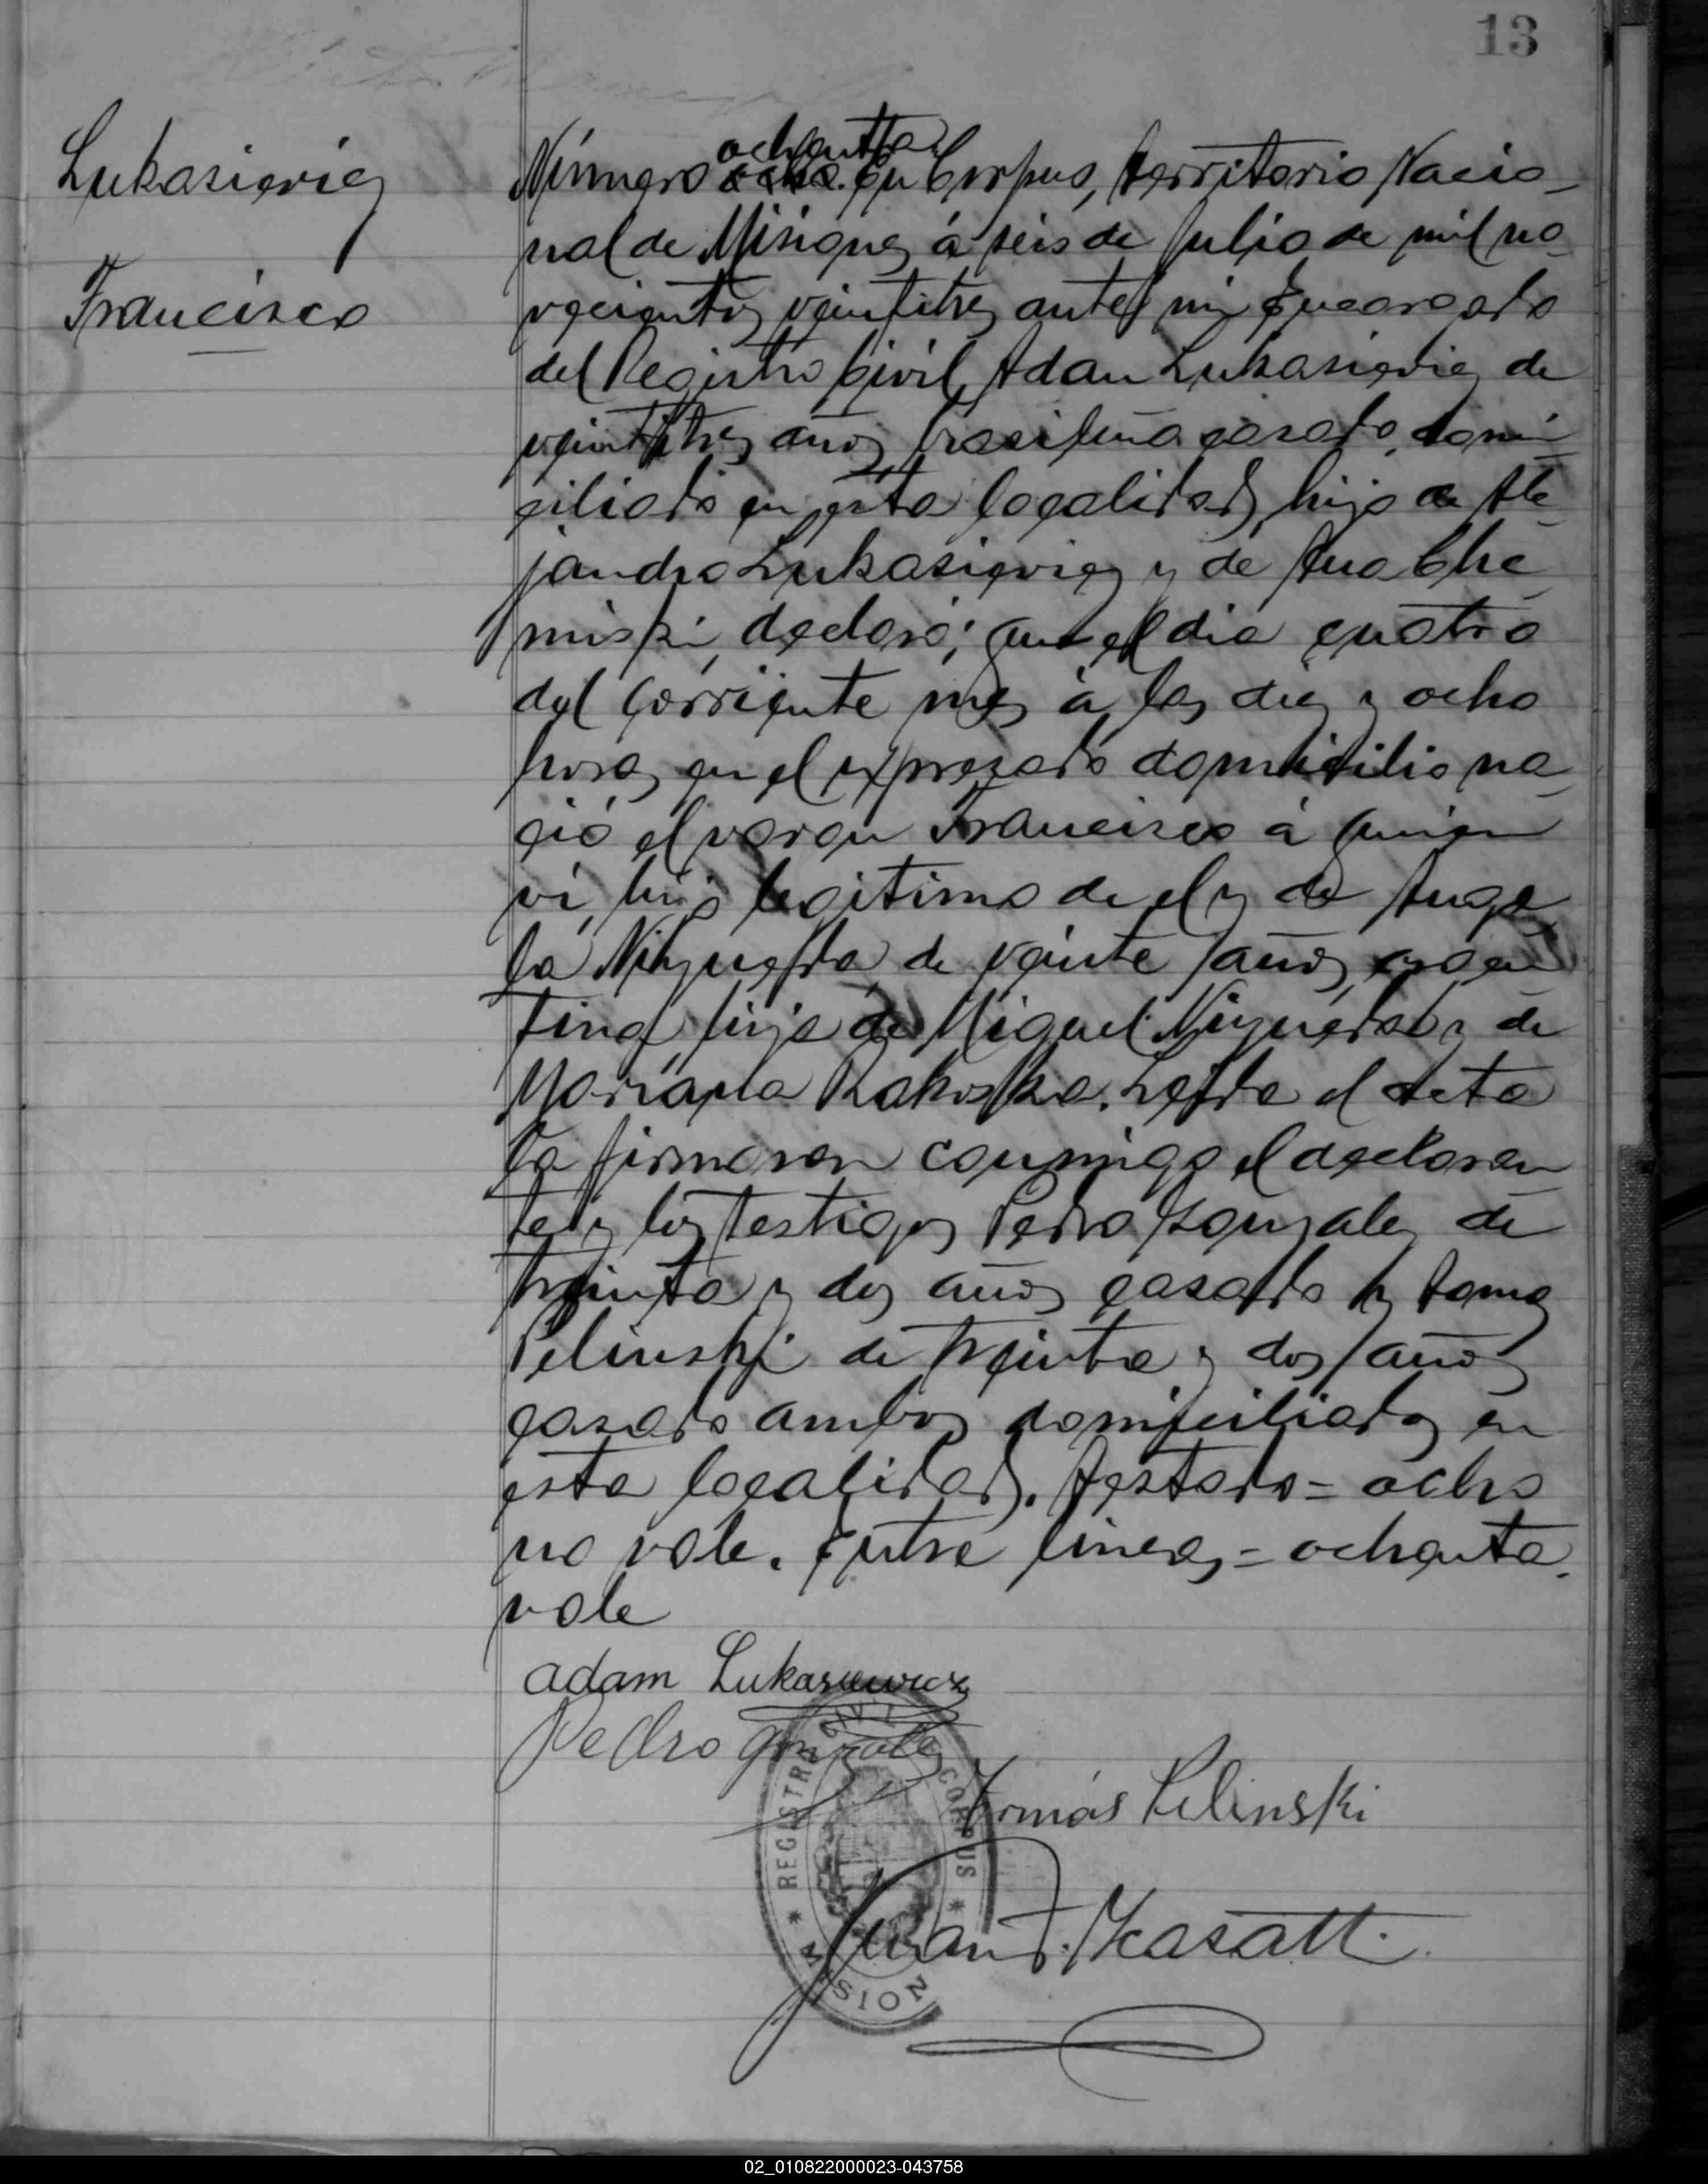 13
Lukasievicz
Francisco
ochenta
Número ocho. En Corpus, territorio Nacio-
nal de Misiones á seis de Julio de mil no-
vecientos veintitres, ante mi Encargado
del Registro Civil, Adan Lukasieviez de
veintitres años, brasileño casado, domi-
ciliado en esta localidad, hijo de Ale-
jandro Lukasieviez y de Ana Che-
miski, declaró; que el dia cuatro
del corriente mes á las diez y ocho
horas en el expresado domicilio na-
ció el varon Francisco á quien
vi, hijo legitimo de el y de Ange-
la de veinte años, argen-
tina, hija de Miguel y de
Mariana Rakoska. Leida el acta
la firmaron conmigo el declaran-
te y los testigos Pedro Gonzalez de
treinta y dos años casado y Tomas
Pelinski de treinta y dos años
casado ambos domiciliados en
esta localidad. Testado = ocho
no vale. Entre lineas = ochenta.
vale
Adam Lukasiewicz
Pedro Gonzalez
Tomás Pelinski
REGISTRO CIVIL CORPUS * MISION *
Juan F. Masatt.
02_010822000023-043758